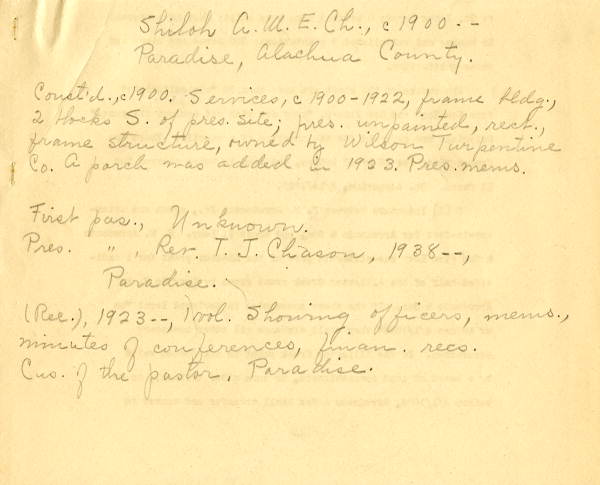 Shiloh A. M. E. Ch., c1900--
Paradise, Alachua County.
Const'd., c1900. Services, c1900-1922, frame bldg.,
2 blocks S. of pres. site; pres. unpainted, rect.,
frame structure, owned by Wilson Turpentine
Co. A porch was added in 1923. Pres. mems.
First pas., Unknown.
Pres. " , Rev. T. J. Chason, 1938--,
Paradise.
(Rec.), 1923--, 1 vol. Showing officers, mems.,
minutes of conferences, finan. recs.
Cus. of the pastor, Paradise.